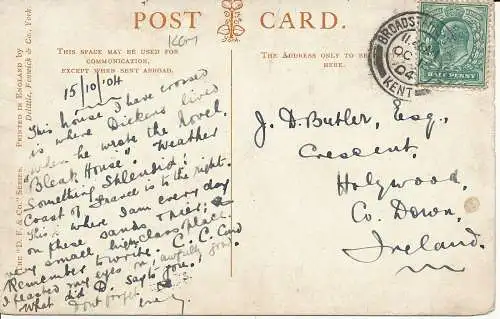 POST CARD.
THIS SPACE MAY BE USED FOR
COMMUNICATION,
EXCEPT WHEN SENT ABROAD.
THE ADDRESS ONLY TO BE
HERE.
15/10/04
This house I have crossed
is where Dickens lived
when he wrote the novel,
"Bleak House". Weather
Something Splendid!
Coast of France is to the right.
This is where I am every day
on these sands
very small high class place.
Remember to write. C. C. Card
I feasted my eyes on, awfully good
What did D. say to you?
Don't forget
J. D. Butler, Esq.,
Crescent,
Holywood,
Co. Down,
Ireland.
BROADSTAIRS
OC
04
KENT
HALFPENNY
THE "D. F. & CO." SERIES.
PRINTED IN ENGLAND by
Delittle, Fenwick & Co., York.